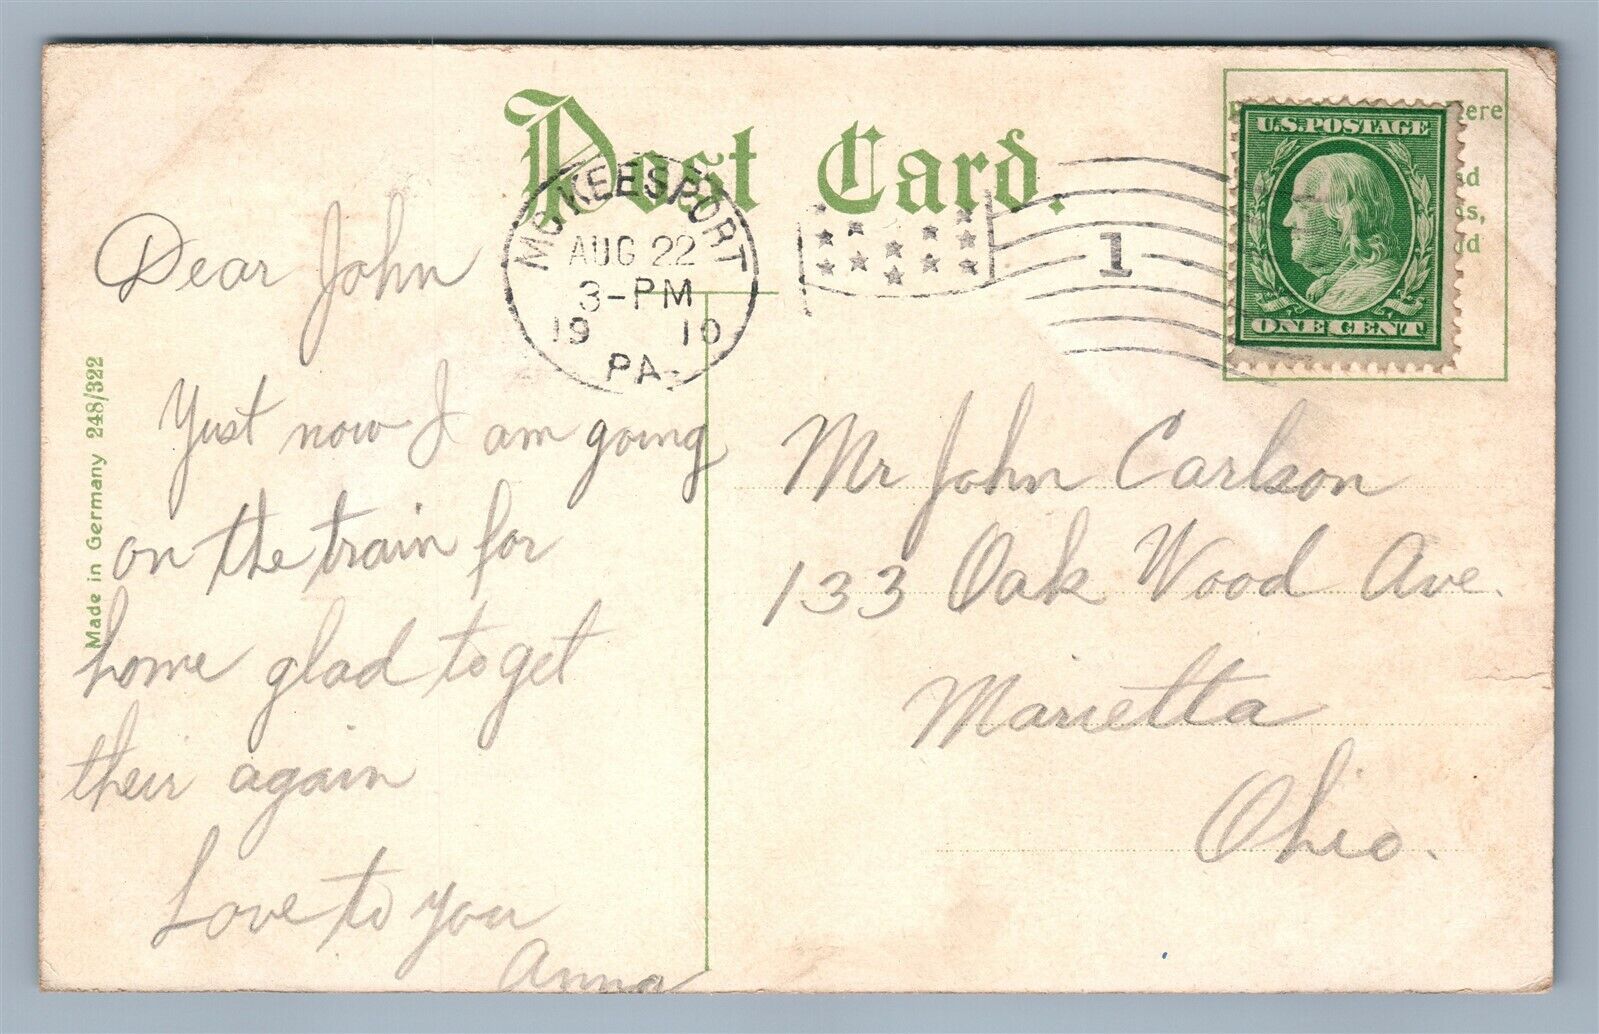 Post Card.
McKEESPORT
AUG 22
3-PM
19 10
PA.
1
U.S.POSTAGE
ONE CENT
ere
Made in Germany 248/322
Dear John
Just now I am going
on the train for
home glad to get
their again
Love to you
Anna
Mr John Carlson
133 Oak Wood Ave.
Marietta
Ohio.